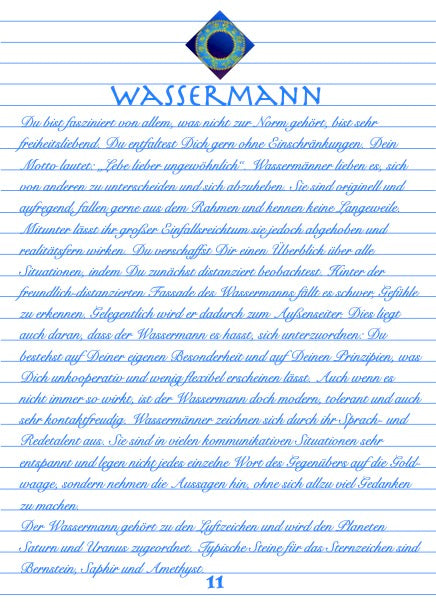 WASSERMANN
Du bist fasziniert von allem, was nicht zur Norm gehört, bist sehr
freiheitsliebend. Du entfaltest Dich gern ohne Einschränkungen. Dein
Motto lautet: „Lebe lieber ungewöhnlich“. Wassermänner lieben es, sich
von anderen zu unterscheiden und sich abzuheben. Sie sind originell und
aufregend, fallen gerne aus dem Rahmen und kennen keine Langeweile.
Mitunter lässt ihr großer Einfallsreichtum sie jedoch abgehoben und
realitätsfern wirken. Du verschaffst Dir einen Überblick über alle
Situationen, indem Du zunächst distanziert beobachtest. Hinter der
freundlich-distanzierten Fassade des Wassermanns fällt es schwer, Gefühle
zu erkennen. Gelegentlich wird er dadurch zum Außenseiter. Dies liegt
auch daran, dass der Wassermann es hasst, sich unterzuordnen: Du
bestehst auf Deiner eigenen Besonderheit und auf Deinen Prinzipien, was
Dich unkooperativ und wenig flexibel erscheinen lässt. Auch wenn es
nicht immer so wirkt, ist der Wassermann doch modern, tolerant und auch
sehr kontaktfreudig. Wassermänner zeichnen sich durch ihr Sprach- und
Redetalent aus. Sie sind in vielen kommunikativen Situationen sehr
entspannt und legen nicht jedes einzelne Wort des Gegenübers auf die Gold-
waage, sondern nehmen die Aussagen hin, ohne sich allzu viel Gedanken
zu machen.
Der Wassermann gehört zu den Luftzeichen und wird den Planeten
Saturn und Uranus zugeordnet. Typische Steine für das Sternzeichen sind
Bernstein, Saphir und Amethyst.
11